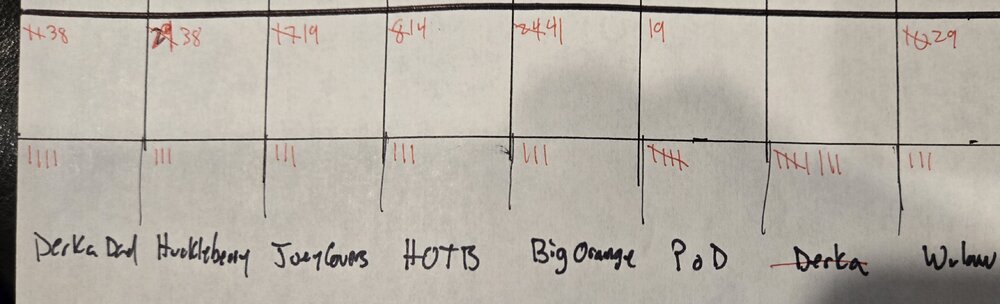 38 38 19 14 41 19 29
|||| ||| ||| ||| ||| 𝍸 𝍸 ||| |||
Derka Dad Huckleberry Joey Covers HOTB Big Orange PoD Derka